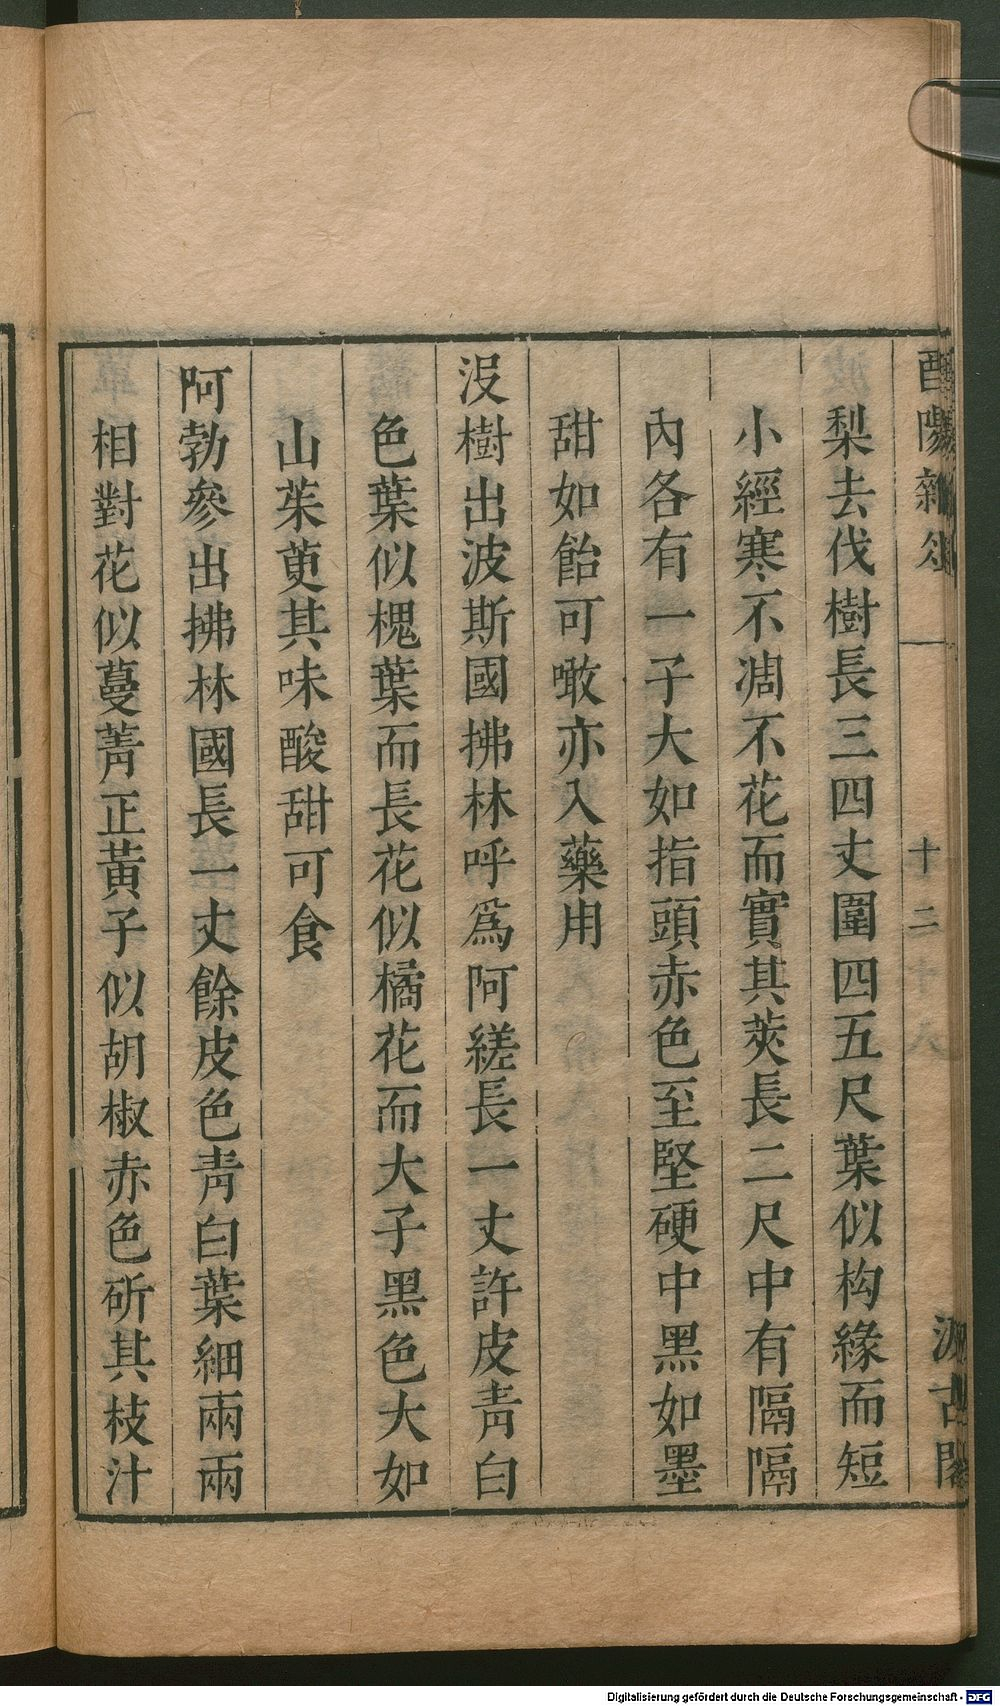 酉陽雜俎
十二
汲古閣
梨去伐樹長三四丈圍四五尺葉似构緣而短
小經寒不凋不花而實其莢長二尺中有隔隔
內各有一子大如指頭赤色至堅硬中黑如墨
甜如飴可噉亦入藥用
沒樹出波斯國拂林呼爲阿縒長一丈許皮青白
色葉似槐葉而長花似橘花而大子黑色大如
山茱萸其味酸甜可食
阿勃參出拂林國長一丈餘皮色青白葉細兩兩
相對花似蔓菁正黃子似胡椒赤色斫其枝汁
Digitalisierung gefördert durch die Deutsche Forschungsgemeinschaft - DFG